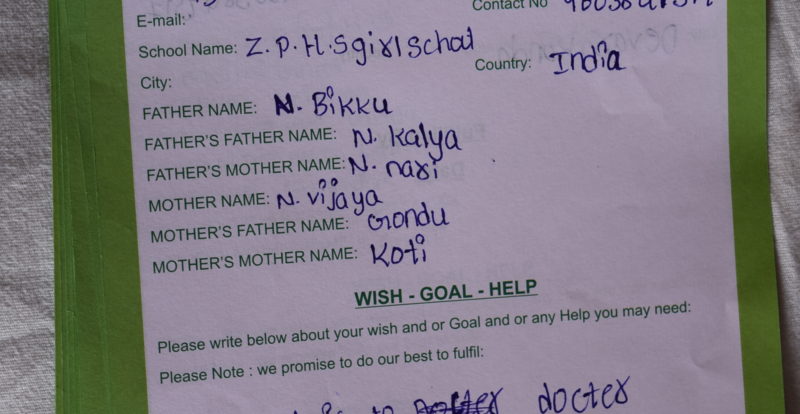 E-mail:
Contact No
School Name: Z.P.H.S girl School
Country: India
City:
FATHER NAME: N. Bikku
FATHER'S FATHER NAME: N. Kalya
FATHER'S MOTHER NAME: N. nari
MOTHER NAME: N. vijaya
MOTHER'S FATHER NAME: Gondu
MOTHER'S MOTHER NAME: Koti
WISH - GOAL - HELP
Please write below about your wish and or Goal and or any Help you may need:
Please Note : we promise to do our best to fulfil:
to docter